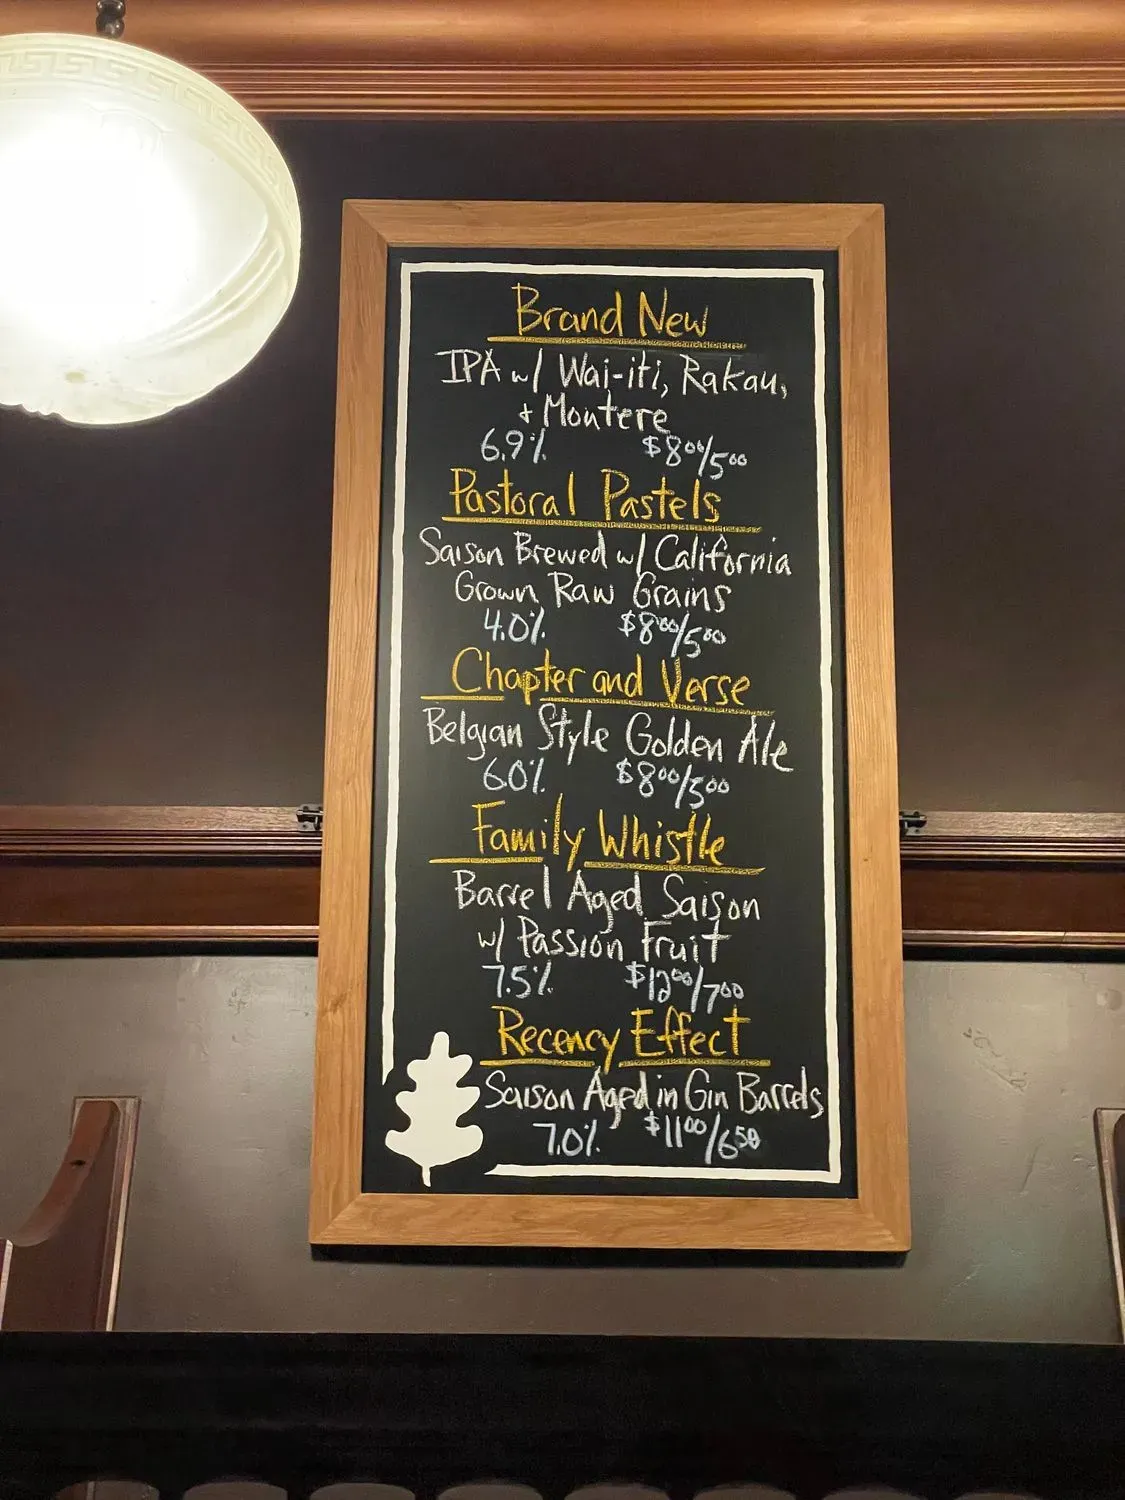 Brand New
IPA w/ Wai-iti, Rakau,
+ Moutere
6.9% $8⁰⁰/5⁰⁰
Pastoral Pastels
Saison Brewed w/ California
Grown Raw Grains
4.0% $8⁰⁰/5⁰⁰
Chapter and Verse
Belgian Style Golden Ale
6.0% $8⁰⁰/5⁰⁰
Family Whistle
Barrel Aged Saison
w/ Passion Fruit
7.5% $12⁰⁰/7⁰⁰
Recency Effect
Saison Aged in Gin Barrels
7.0% $11⁰⁰/6⁵⁰